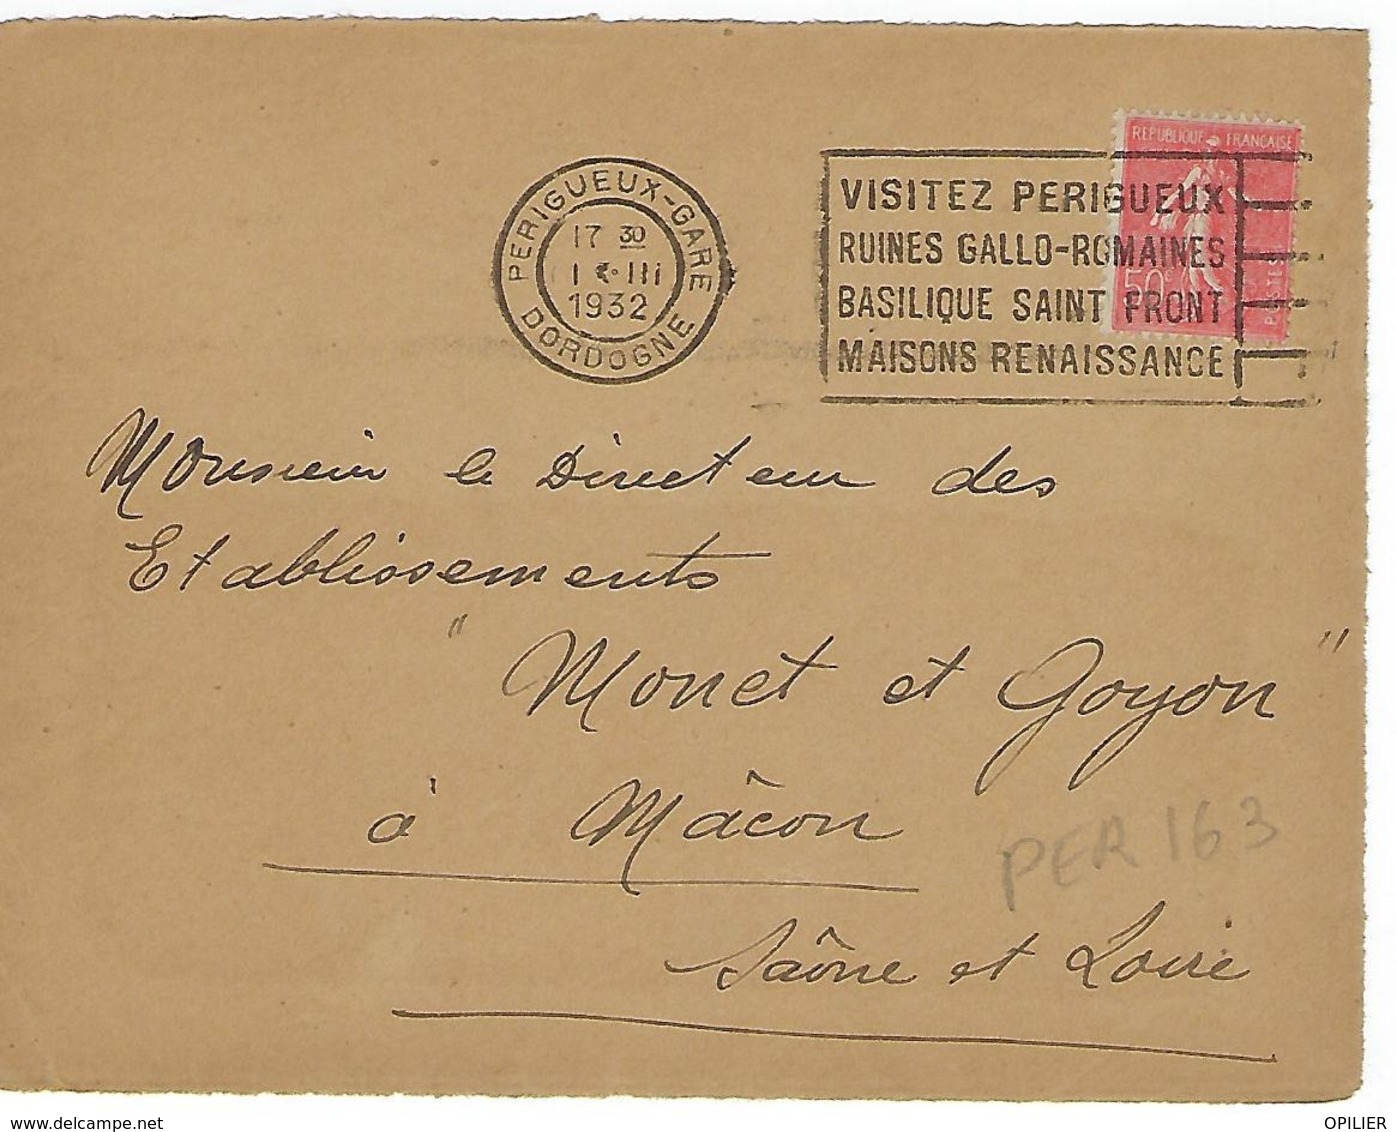 REPUBLIQUE FRANÇAISE
50c
POSTES
PERIGUEUX-GARE
17 30
1 III
1932
DORDOGNE
VISITEZ PERIGUEUX
RUINES GALLO-ROMAINES
BASILIQUE SAINT FRONT
MAISONS RENAISSANCE
Monsieur le Directeur des
Etablissements
"Monet et Goyon"
à Mâcon
Saône et Loire
PER 163
www.delcampe.net
OPILIER